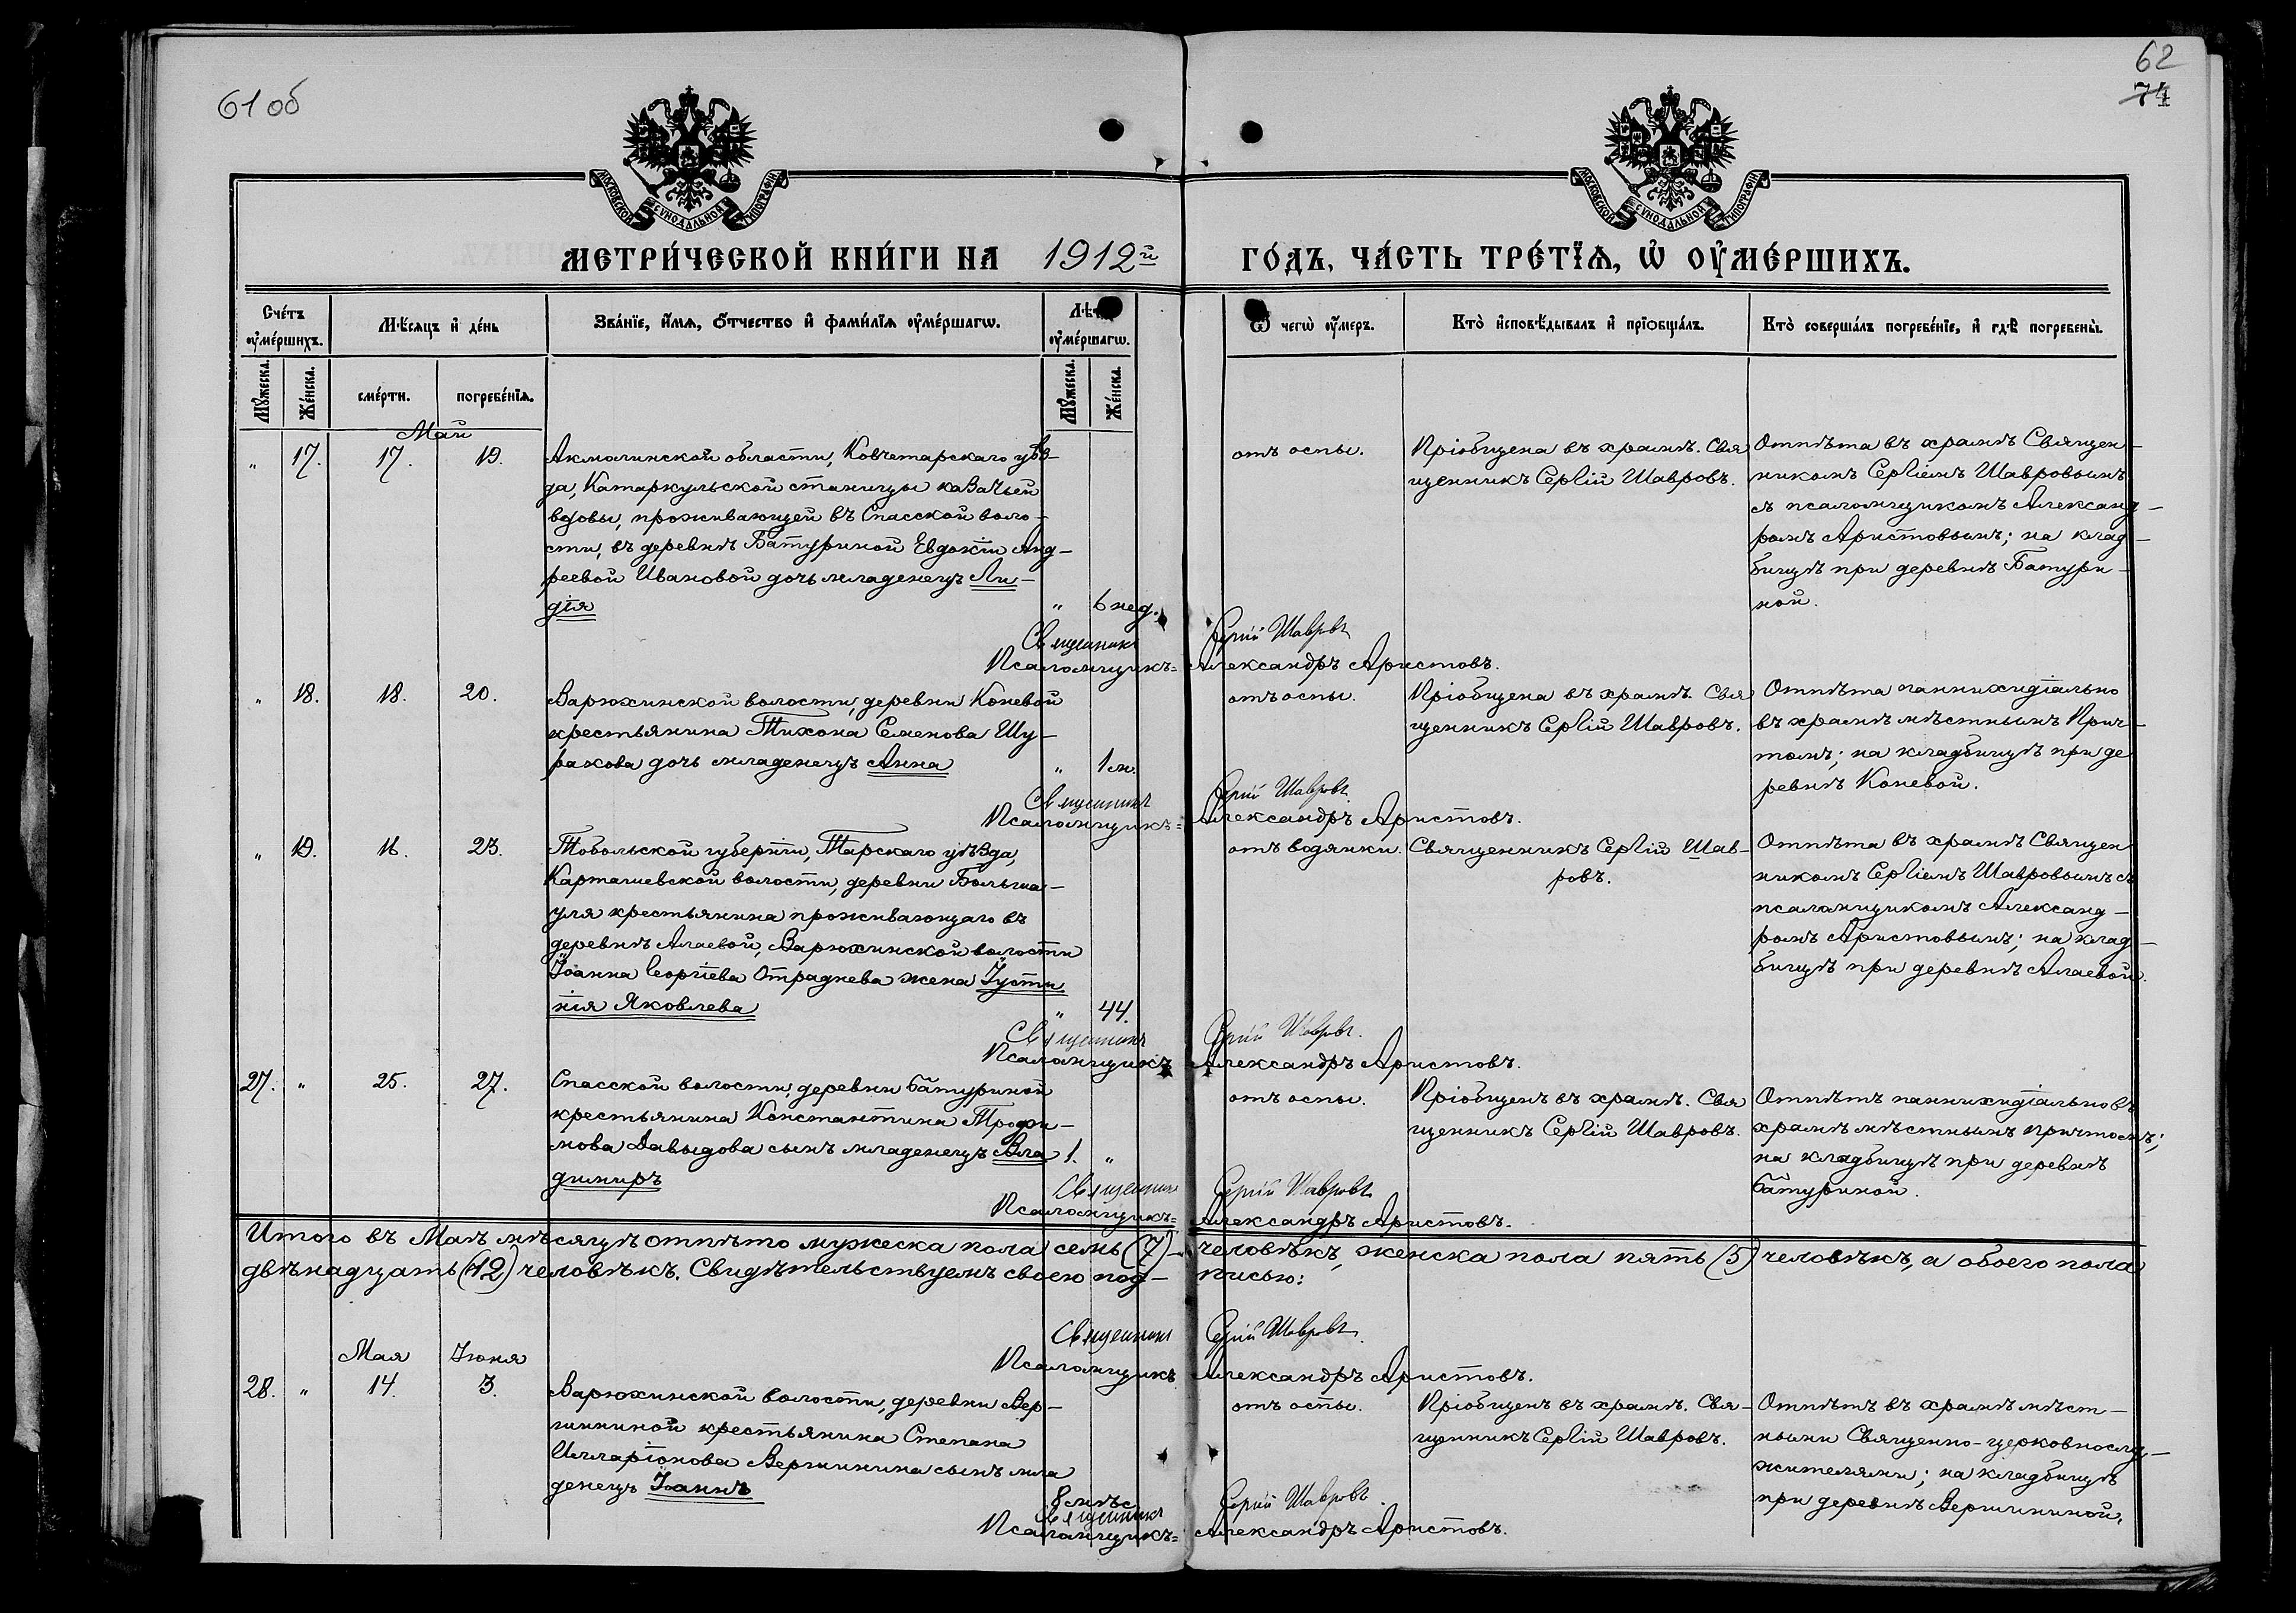 61 об
62
74
МОСКОВСКОЙ СѴНОДАЛЬНОЙ ТИПОГРАФІИ
МОСКОВСКОЙ СѴНОДАЛЬНОЙ ТИПОГРАФІИ
МЕТРИ́ЧЕСКОЙ КНИ́ГИ НА 1912й ГО́ДЪ, ЧА́СТЬ ТРЕ́ТЇѦ, Ѡ҆ ОУ҆МЕ́РШИХЪ.
Сче́тъ оу҆ме́ршихъ.
Мѣ́сяцъ и҆ де́нь
Зва́нїе, и҆́мѧ, ѻ҆́тчество и҆ фами́лїѧ оу҆ме́ршагѡ.
Лѣ́ оу҆ме́ршагѡ.
Ѿ чегѡ̀ оу҆́меръ.
Кто̀ и҆сповѣ́дывалъ и҆ прїѡбща́лъ.
Кто̀ соверша́лъ погребе́нїе, и҆ гдѣ̀ погребены̀.
Мꙋ́жеска.
Же́нска.
сме́рти.
погребе́нїѧ.
Мꙋ́жеска.
Же́нска.
Май
" 17. 17. 19.
Акмолинской области, Кокчетарскаго уѣз-
да, Катаркульской станицы казачьей
вдовы, проживающей въ Спасской воло-
сти, въ деревнѣ Батуриной Евдокіи Анд-
реевой Ивановой дочь младенецъ Ли-
дія
" 6 нед.
отъ оспы.
Пріобщена въ храмѣ. Свя
щенникъ Сергій Шавровъ.
Отпѣта въ храмѣ Священ-
никомъ Сергіемъ Шавровымъ
съ псаломщикомъ Александ-
ромъ Аристовымъ; на клад-
бищѣ при деревнѣ Батури-
ной.
Священникъ Сергій Шавровъ
Псаломщикъ= Александръ Аристовъ.
" 18. 18. 20.
Варюхинской волости, деревни Коневой
крестьянина Тихона Семенова Шу-
ракова дочь младенецъ Анна
" 1 м.
отъ оспы.
Пріобщена въ храмѣ. Свя
щенникъ Сергій Шавровъ.
Отпѣта паннихидіально
въ храмѣ мѣстнымъ Прич-
томъ; на кладбищѣ при де
ревнѣ Коневой.
Священникъ Сергій Шавровъ.
Псаломщикъ= Александръ Аристовъ.
" 19. 16. 23.
Тобольской губерніи, Тарскаго уѣзда,
Карташевской волости, деревни Больша-
уля крестьянина проживающаго въ
деревнѣ Алаевой, Варюхинской волости
Іоанна Георгіева Отраднева жена Іусти
нія Яковлева
" 44.
отъ водянки.
Священникъ Сергій Шав-
ровъ.
Отпѣта въ храмѣ Священ
никомъ Сергіемъ Шавровымъ съ
псаломщикомъ Александ-
ромъ Аристовымъ; на клад-
бищѣ при деревнѣ Алаевой.
Священникъ Сергій Шавровъ.
Псаломщикъ Александръ Аристовъ.
27. " 25. 27.
Спасской волости, деревни Батуриной
крестьянина Константина Трофи-
мова Давыдова сынъ младенецъ Вла
димиръ
1. "
отъ оспы.
Пріобщенъ въ храмѣ. Свя
щенникъ Сергій Шавровъ.
Отпѣтъ паннихидіально въ
храмѣ мѣстнымъ причтомъ;
на кладбищѣ при деревнѣ
Батуриной.
Священникъ Сергій Шавровъ
Псаломщикъ= Александръ Аристовъ.
Итого въ Маѣ мѣсяцѣ отпѣто мужеска пола семь (7) человѣкъ, женска пола пять (5) человѣкъ, а обоего пола
двѣнадцать (12) человѣкъ. Свидѣтельствуемъ своею под- писью:
Священникъ Сергій Шавровъ.
Псаломщикъ Александръ Аристовъ.
Мая Іюня
28. " 14. 3.
Варюхинской волости, деревни Вер-
шининой крестьянина Степана
Илларіонова Вершинина сынъ мла
денецъ Іоаннъ
8 мѣс
отъ оспы.
Пріобщенъ въ храмѣ. Свя-
щенникъ Сергій Шавровъ.
Отпѣтъ въ храмѣ мѣст-
ными Священно-церковнослу-
жителями; на кладбищѣ
при деревнѣ Вершининой.
Священникъ Сергій Шавровъ.
Псаломщикъ= Александръ Аристовъ.